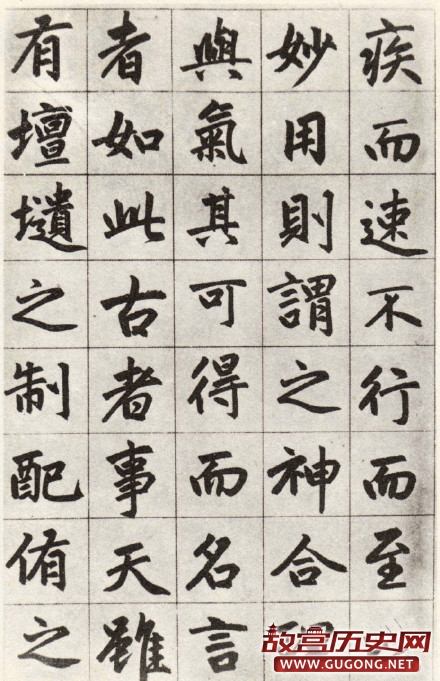 疾而速不行而至
妙用則謂之神合
與氣其可得而名言
者如此古者事天雖
有壇壝之制配侑之
故宫历史网
WWW.GUGONG.NET